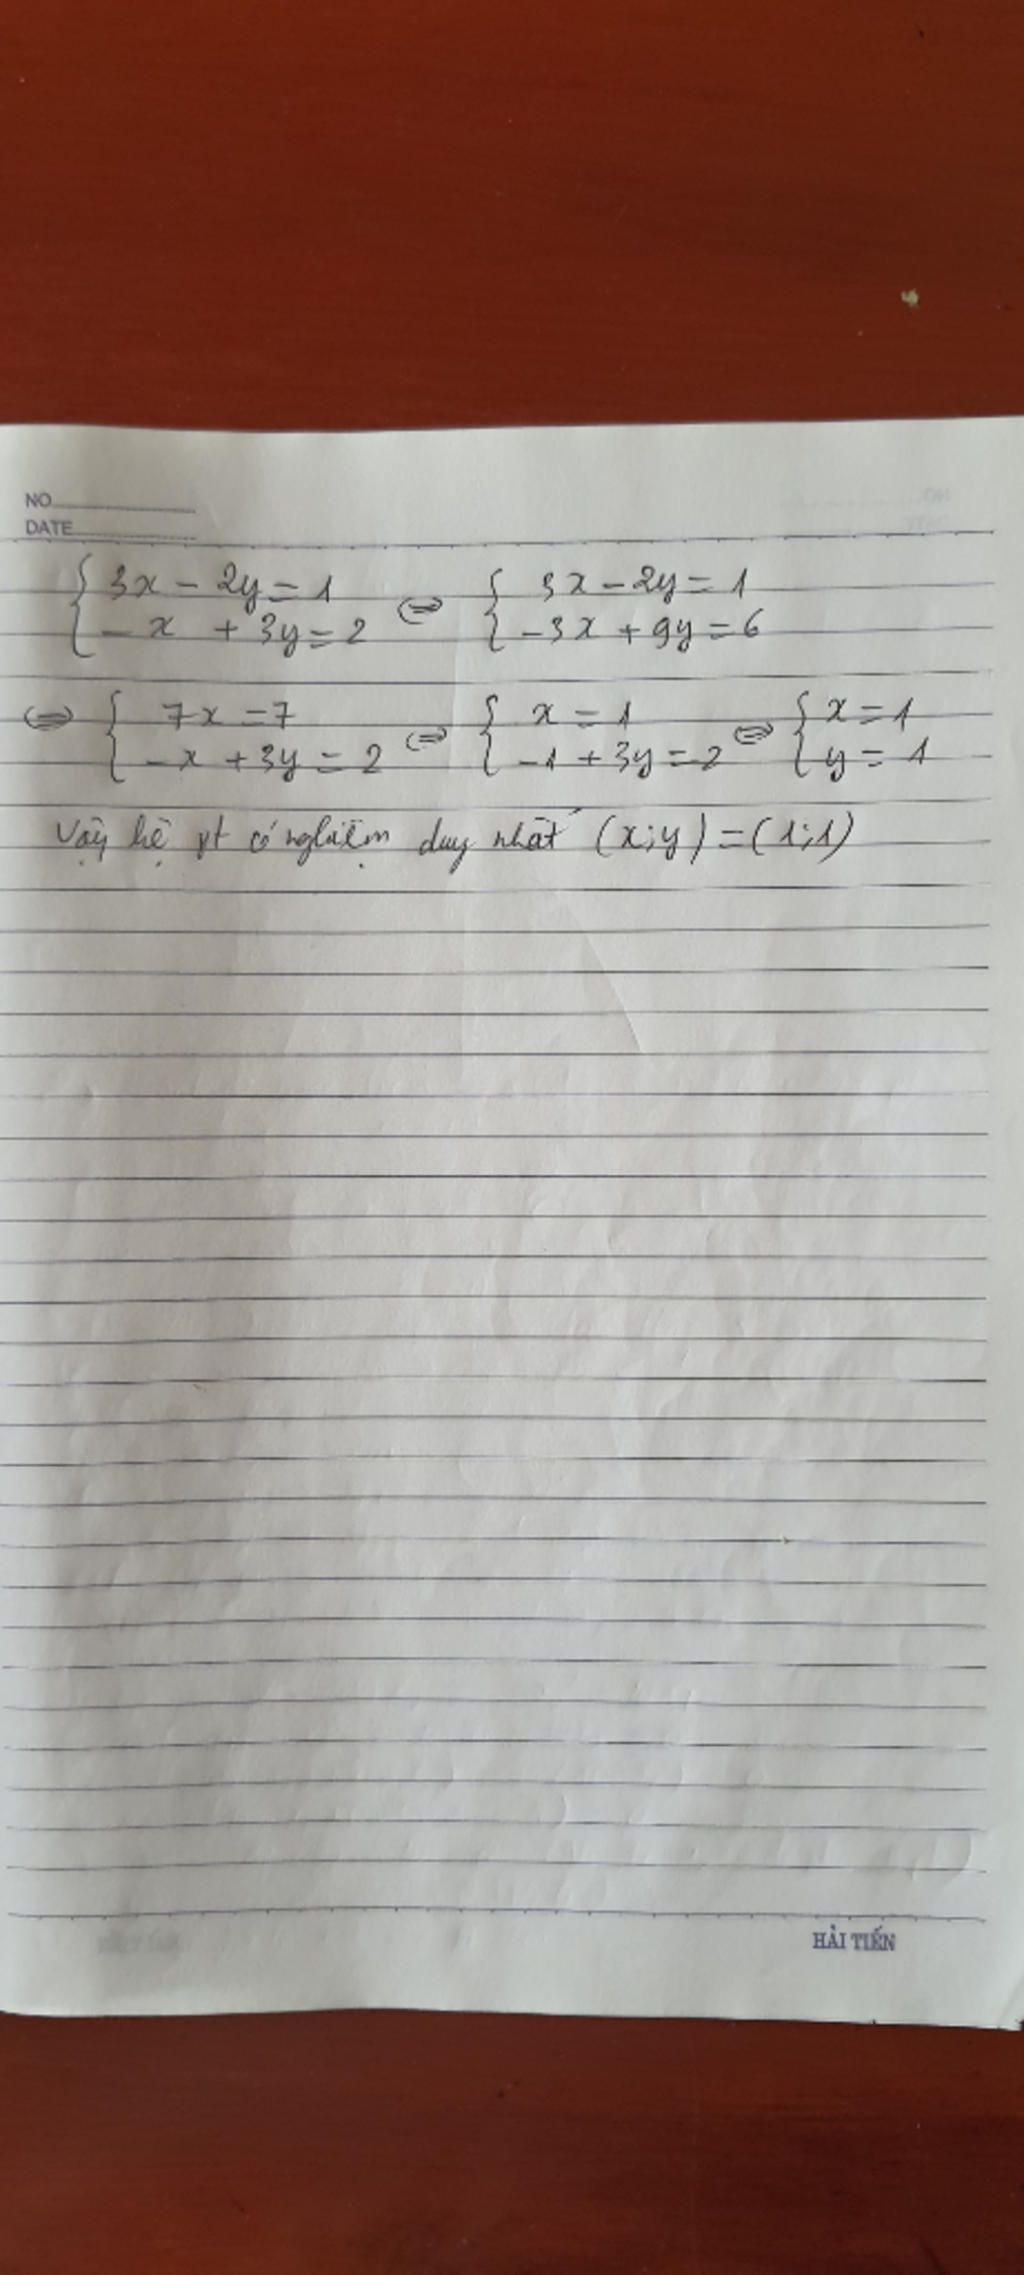 NO
DATE
{ 3x - 2y = 1 <=> { 3x - 2y = 1
{ - x + 3y = 2 { - 3x + 9y = 6
<=> { 7x = 7 <=> { x = 1 <=> { x = 1
{ - x + 3y = 2 { - 1 + 3y = 2 { y = 1
Vậy hệ pt có nghiệm duy nhất (x;y) = (1;1)
HẢI TIẾN